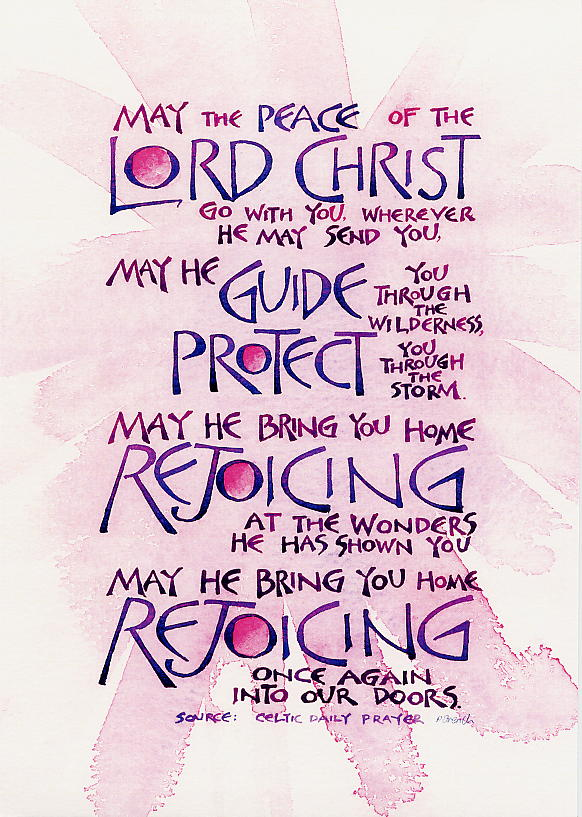 MAY THE PEACE OF THE
LORD CHRIST
GO WITH YOU, WHEREVER
HE MAY SEND YOU,
MAY HE GUIDE YOU
THROUGH
THE
WILDERNESS,
PROTECT YOU
THROUGH
THE
STORM.
MAY HE BRING YOU HOME
REJOICING
AT THE WONDERS
HE HAS SHOWN YOU
MAY HE BRING YOU HOME
REJOICING
ONCE AGAIN
INTO OUR DOORS.
SOURCE: CELTIC DAILY PRAYER